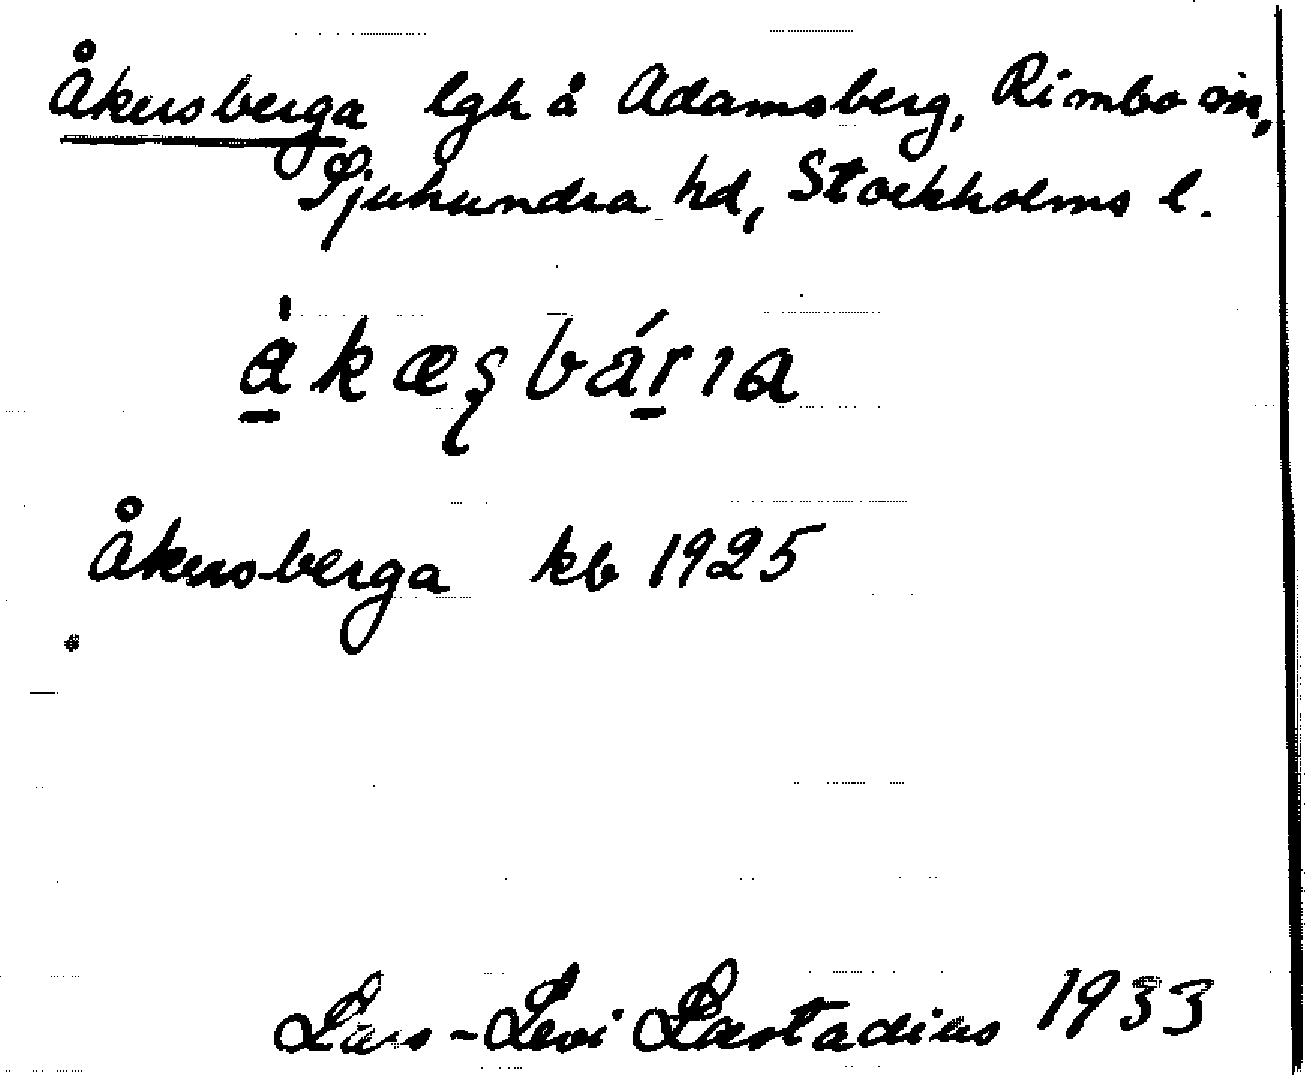 Åkersberga lgh å Adamsberg, Rimbo sn,
Sjuhundra hd, Stockholms l.
a̱̍kæʂbáṟıa
Åkersberga kb 1925
Lars-Levi Læstadius 1933